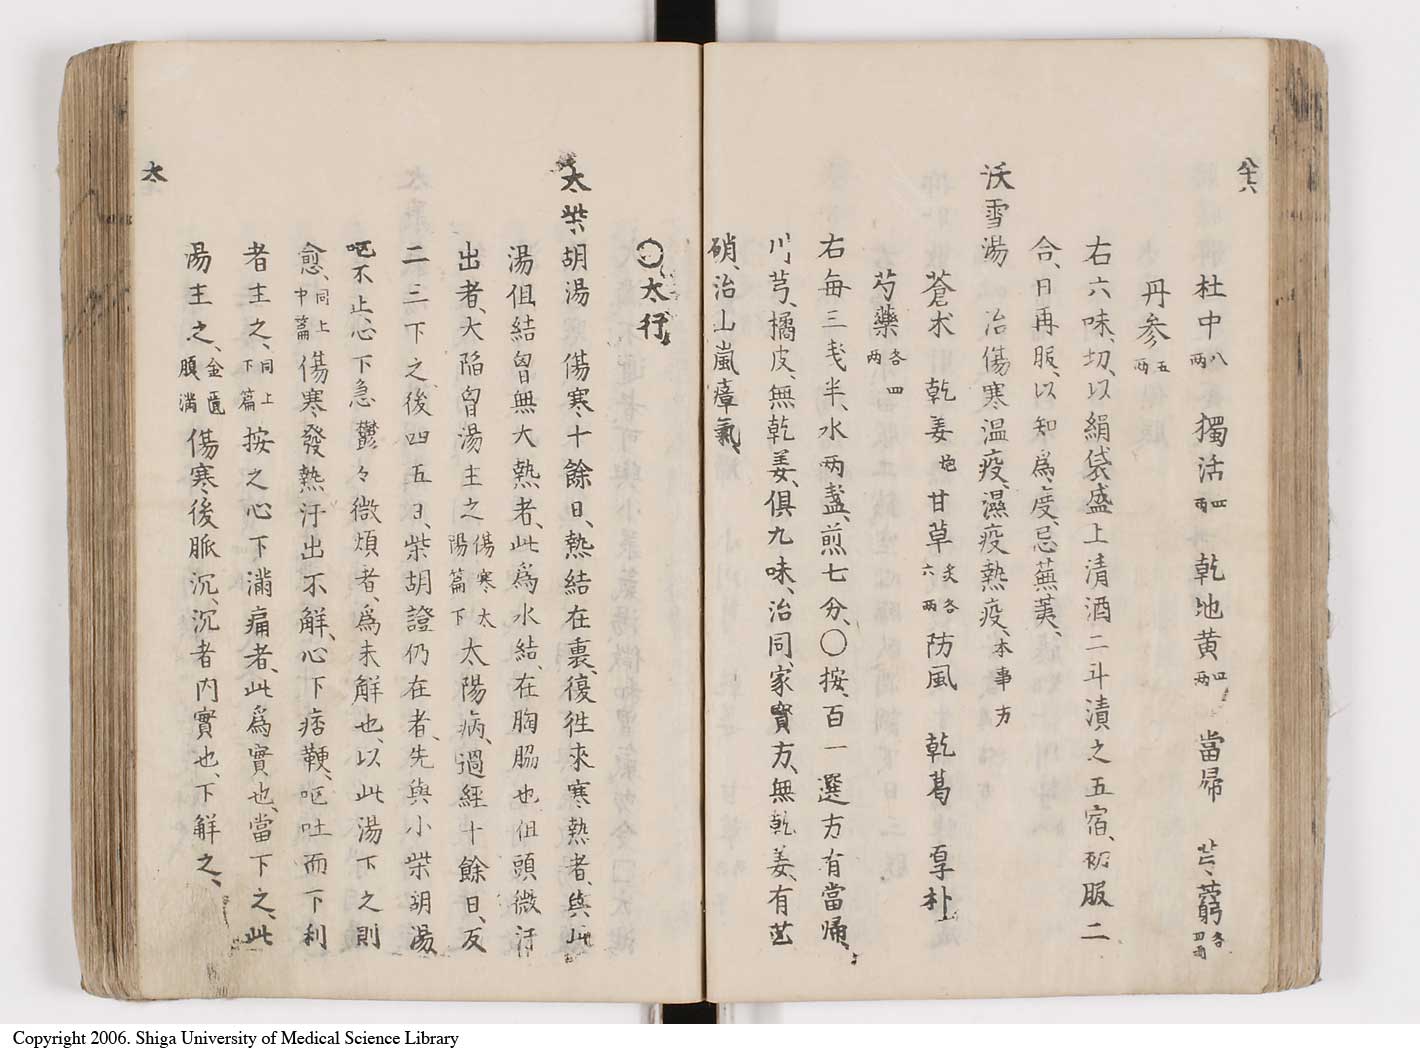 杜中八两 獨活四两 乾地黄四两 當帰 芎藭各四两
丹参五两
右六味、切、以絹袋盛上清酒二斗漬之五宿、初服二
合、日再服、以知為度、忌蕪荑、
沃雪湯 治傷寒温疫、濕疫、熱疫、本事方
蒼朮 乾姜炮 甘草炙各六两 防風 乾葛 厚朴
芍藥各四两
右毎三戔半、水两盞、煎七分、〇按、百一選方有當帰、
川芎、橘皮、無乾姜、俱九味、治同、家寳方、無乾姜、有芒
硝、治山嵐瘴氣、
〇太行
大柴胡湯 傷寒十餘日、熱結在裏、復徃來寒熱者、與此
湯但結胷無大熱者、此為水結、在胸脇也但頭微汗
出者、大陷胷湯主之傷寒太陽篇下 太陽病、過經十餘日、反
二三下之、後四五日、柴胡證仍在者、先與小柴胡湯
呕不止、心下急鬱々微煩者、為未解也、以此湯下之則
愈、同上中篇 傷寒發熱、汗出不解、心下痞鞕、呕吐而下利
者主之、同上下篇 按之心下滿痛者、此為實也、當下之、此
湯主之、金匱腹満 傷寒後脈沉、沉者内實也、下解之、
太